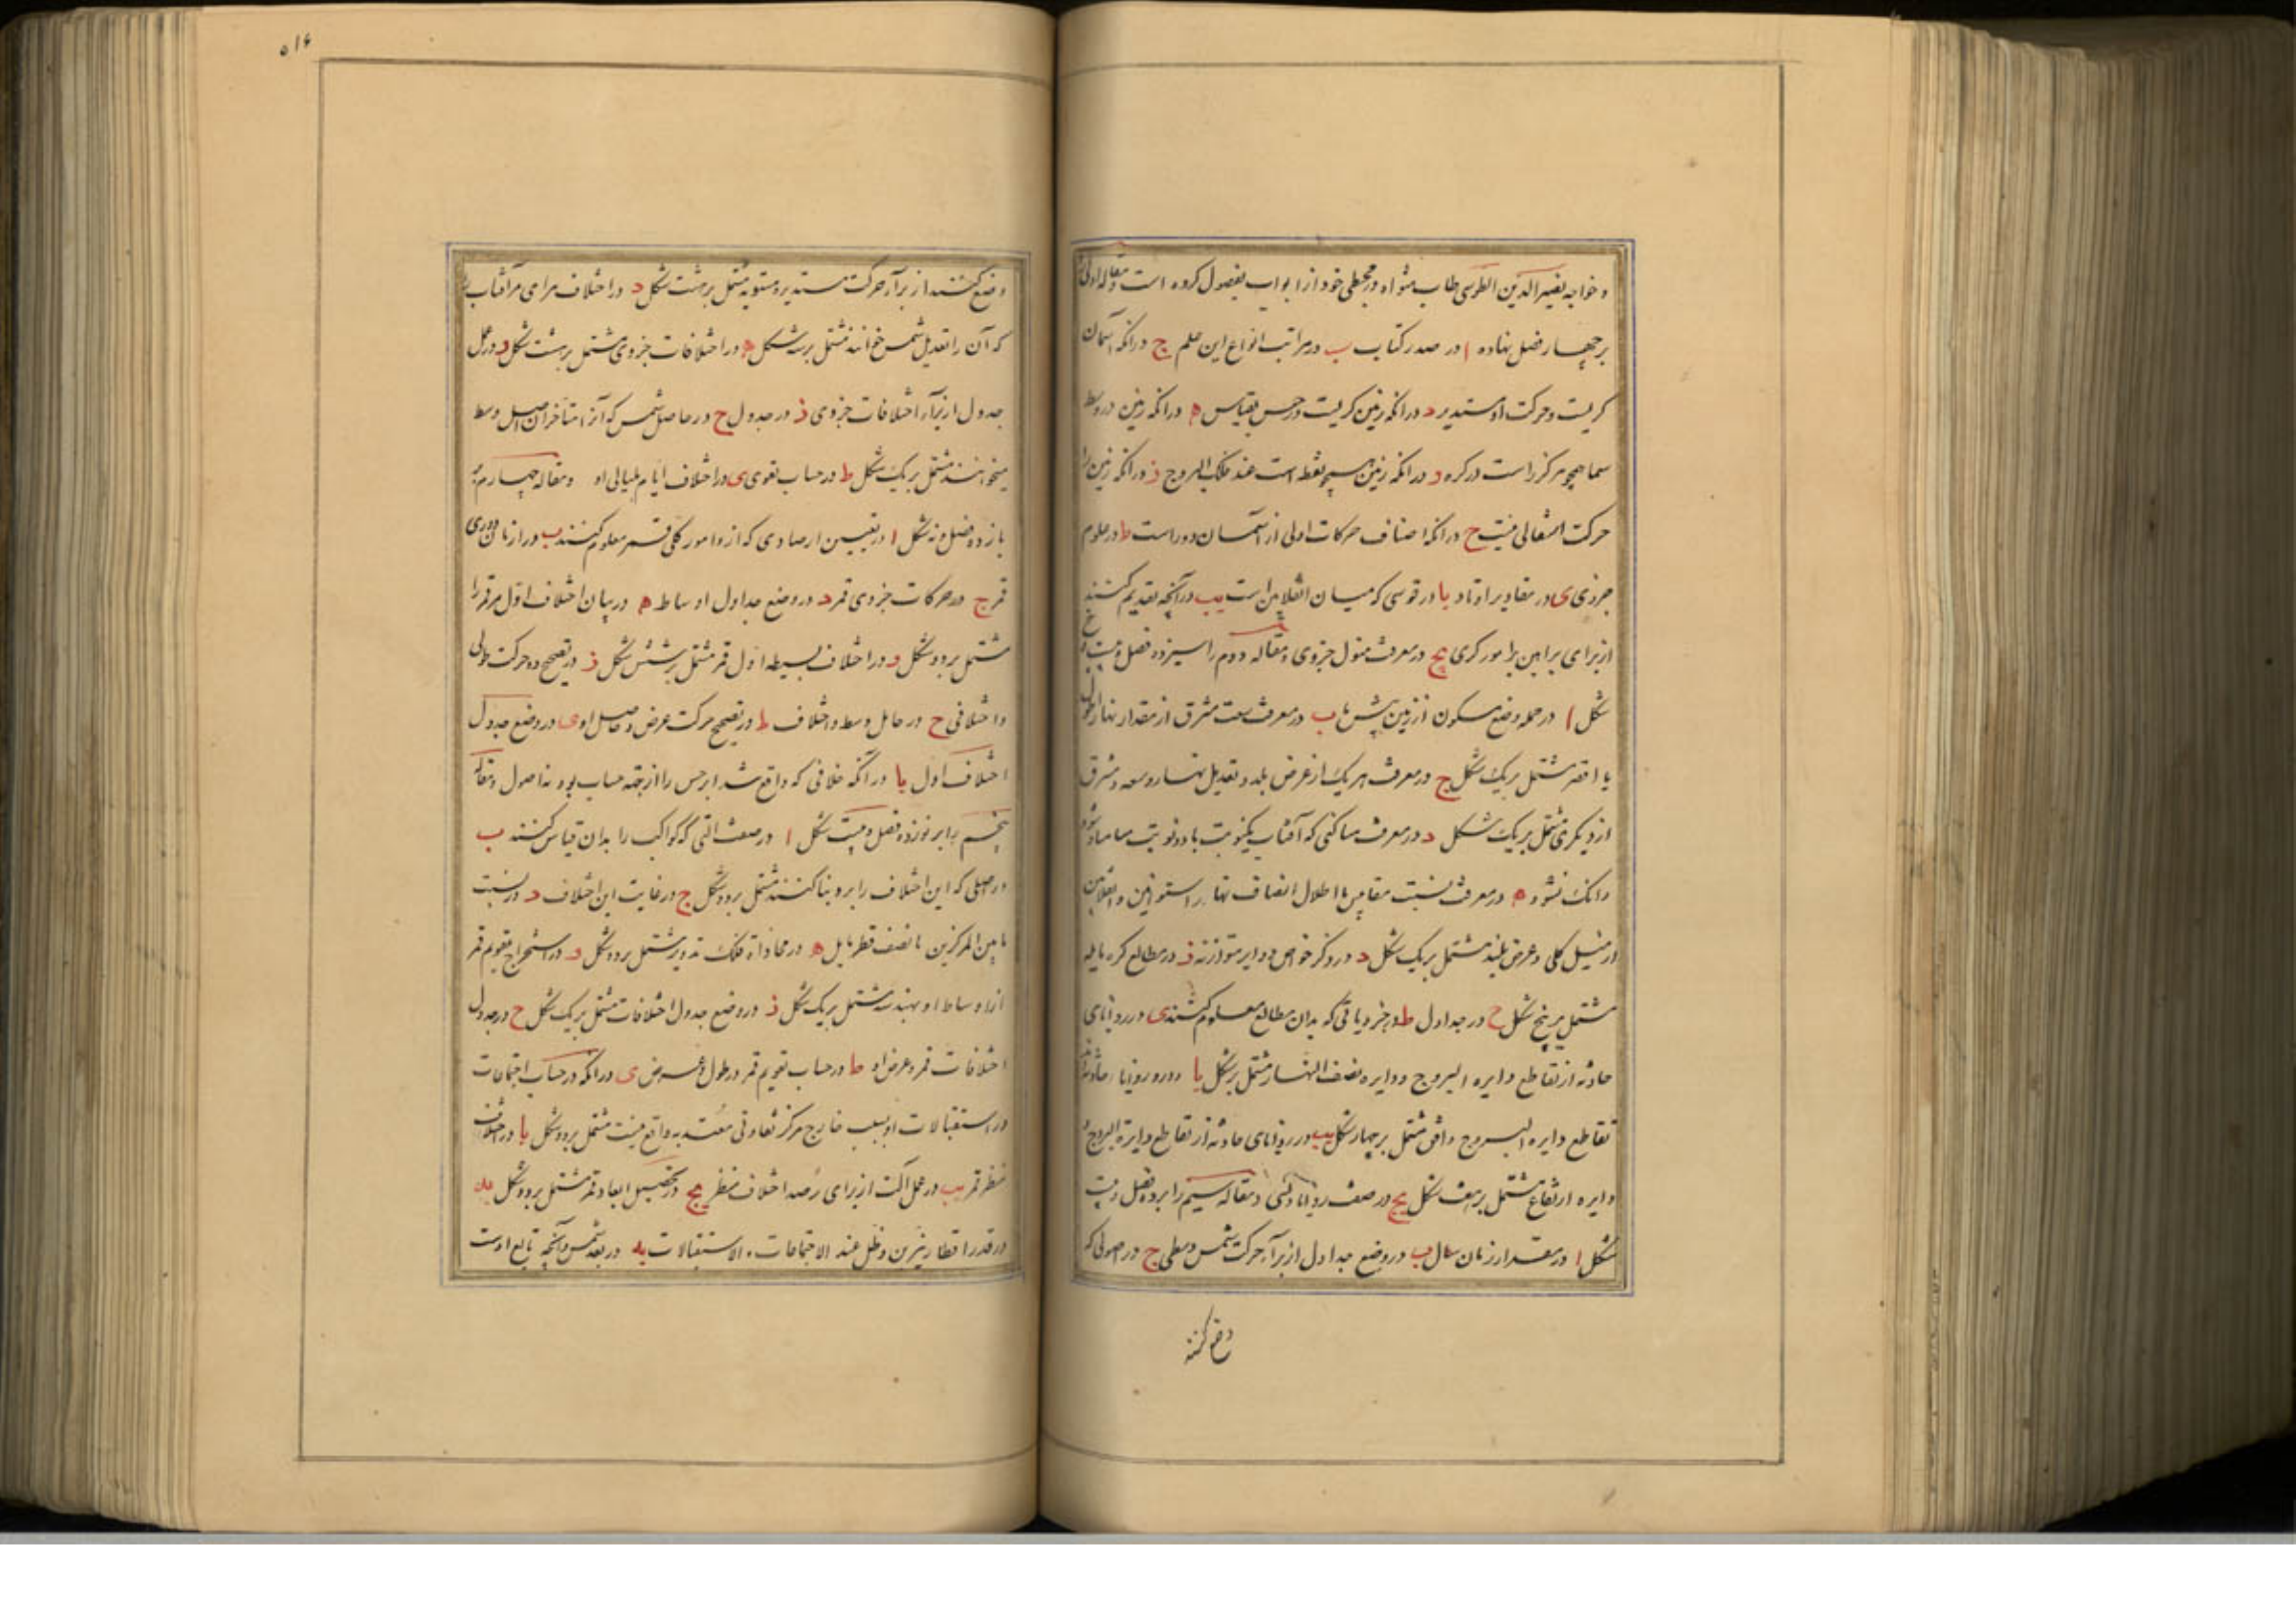 و خواجه نصیر الدین الطوسی طاب مثواه در مجسطی خود از ابواب بفصول کرده است و مقاله اولی
بر چهار فصل نهاده ا در صدر کتاب ب در مراتب انواع این علم ج در انکه آسمان
کریست و حرکت او مستدیر د در انکه زمین کریست در حس بقیاس ه در انکه زمین در وسط
سما همچو مرکز است در کره و در انکه زمین همچو نقطه است عند فلک البروج ز در انکه زمین را
حرکت انتقالی نیست ح در انکه اصناف حرکات اولی از آسمان دو است ط در علوم
جزوی ی در مقادیر اوتار یا در قوسی که میان انقلابین است یب در آنچه تقدیم کنند
از برای براهین را مور کری یج در معرفت میول جزوی و مقاله دوم را سیزده فصل و بیست و
شکل ا در جمله وضع مسکون از زمین پیش ما ب در معرفت سعت مشرق از مقدار نهار اطول
یا اقصر مشتمل بر یک شکل ج در معرفت هر یک از عرض بلد و تعدیل نهار و سعه مشرق
از دیکری مشتمل بر یک شکل د در معرفت مساکنی که آفتاب یکنوبت یا دو نوبت مسامت شود
و انک نشود ه در معرفت نسبت مقاییس با اظلال انصاف نهار در استوائین و انقلابین
از میل کلی و عرض بلند مشتمل بر یک شکل و در ذکر خواص دوایر متوازنه ز در مطالع کره مایله
مشتمل بر پنج شکل ح در جداول ط در جزویاتی که بدان مطالع معلوم کنند ی در زوایای
حادثه از تقاطع دایره البروج و دایره نصف النهار مشتمل بر شکل یا در زوایا حادثه از
تقاطع دایره البروج و افق مشتمل بر چهار شکل یب در زوایای حادثه از تقاطع دایرة البروج و
دایره ارتفاع مشتمل بر هفت شکل یج در صفت زوایا و قسی و مقاله سیم را بر ده فصل و بیست
شکل ا در مقدار زمان سال ب در وضع جداول از برآء حرکت شمس وسطی ج در اصولی که
وضع کنند
۵۱۶
وضع کنند از برآء حرکت مستدیره مستویه مشتمل بر هشت شکل د در اختلاف مرای مر آفتاب را
که آن را تعدیل شمس خوانند مشتمل بر سه شکل ه در اختلافات جزوی مشتمل بر هشت شکل و در عمل
جدول از برآء اختلافات جزوی ز در جدول ح در حاصل شمس که آنرا متأخران اصل وسط
میخوانند مشتمل بر یک شکل ط در حساب تقوی ی در اختلاف ایام بلیالی او و مقاله چهارم بر
یازده فصل و نه شکل ا در تعیین ارصادی که از و امور کلی قمر معلوم کنند ب در ازمان دوری
قمر ج در حرکات جزوی قمر د در وضع جداول اوساط ه در بیان اختلاف اول مر قمر را
مشتمل بر دو شکل و در اختلاف بسیطه اول قمر مشتمل بر شش شکل ز در تصحیح دو حرکت طولی
و اختلافی ح در حاصل وسط و اختلاف ط در تصحیح حرکت عرض و حاصل او ی در وضع جدول
اختلاف اول یا در آنکه خلافی که واقع شد ابرخس را از جهة حساب بود نه اصول و مقاله
پنجم را بر نوزده فصل و بیست شکل ا در صفت آلتی که کواکب را بدان قیاس کنند ب
در اصلی که این اختلاف را برو بنا کنند مشتمل بر دو شکل ج در غایت این اختلاف د در نسبت
ما بین المرکزین با نصف قطر مایل ه در محاذاة فلک تدویر مشتمل بر دو شکل و در استخراج تقویم قمر
از اوساط او بهندسه مشتمل بر یک شکل ز در وضع جدول اختلافات مشتمل بر یک شکل ح در جدول
اختلافات قمر و عرض او ط در حساب تقویم قمر در طول و عرض ی در انکه در حساب اجتماعات
و استقبالات او بسبب خارج مرکز تفاوتی معتد به واقع نیست مشتمل بر دو شکل یا در اختلاف
منظر قمر یب در عمل آلت از برای رصد اختلاف منظر یج در تحصیل ابعاد قمر مشتمل بر دو شکل ید
در قدر اقطار نیرین و ظل عند الاجتماعات و الاستقبالات یه در بعد شمس و آنچه تابع اوست